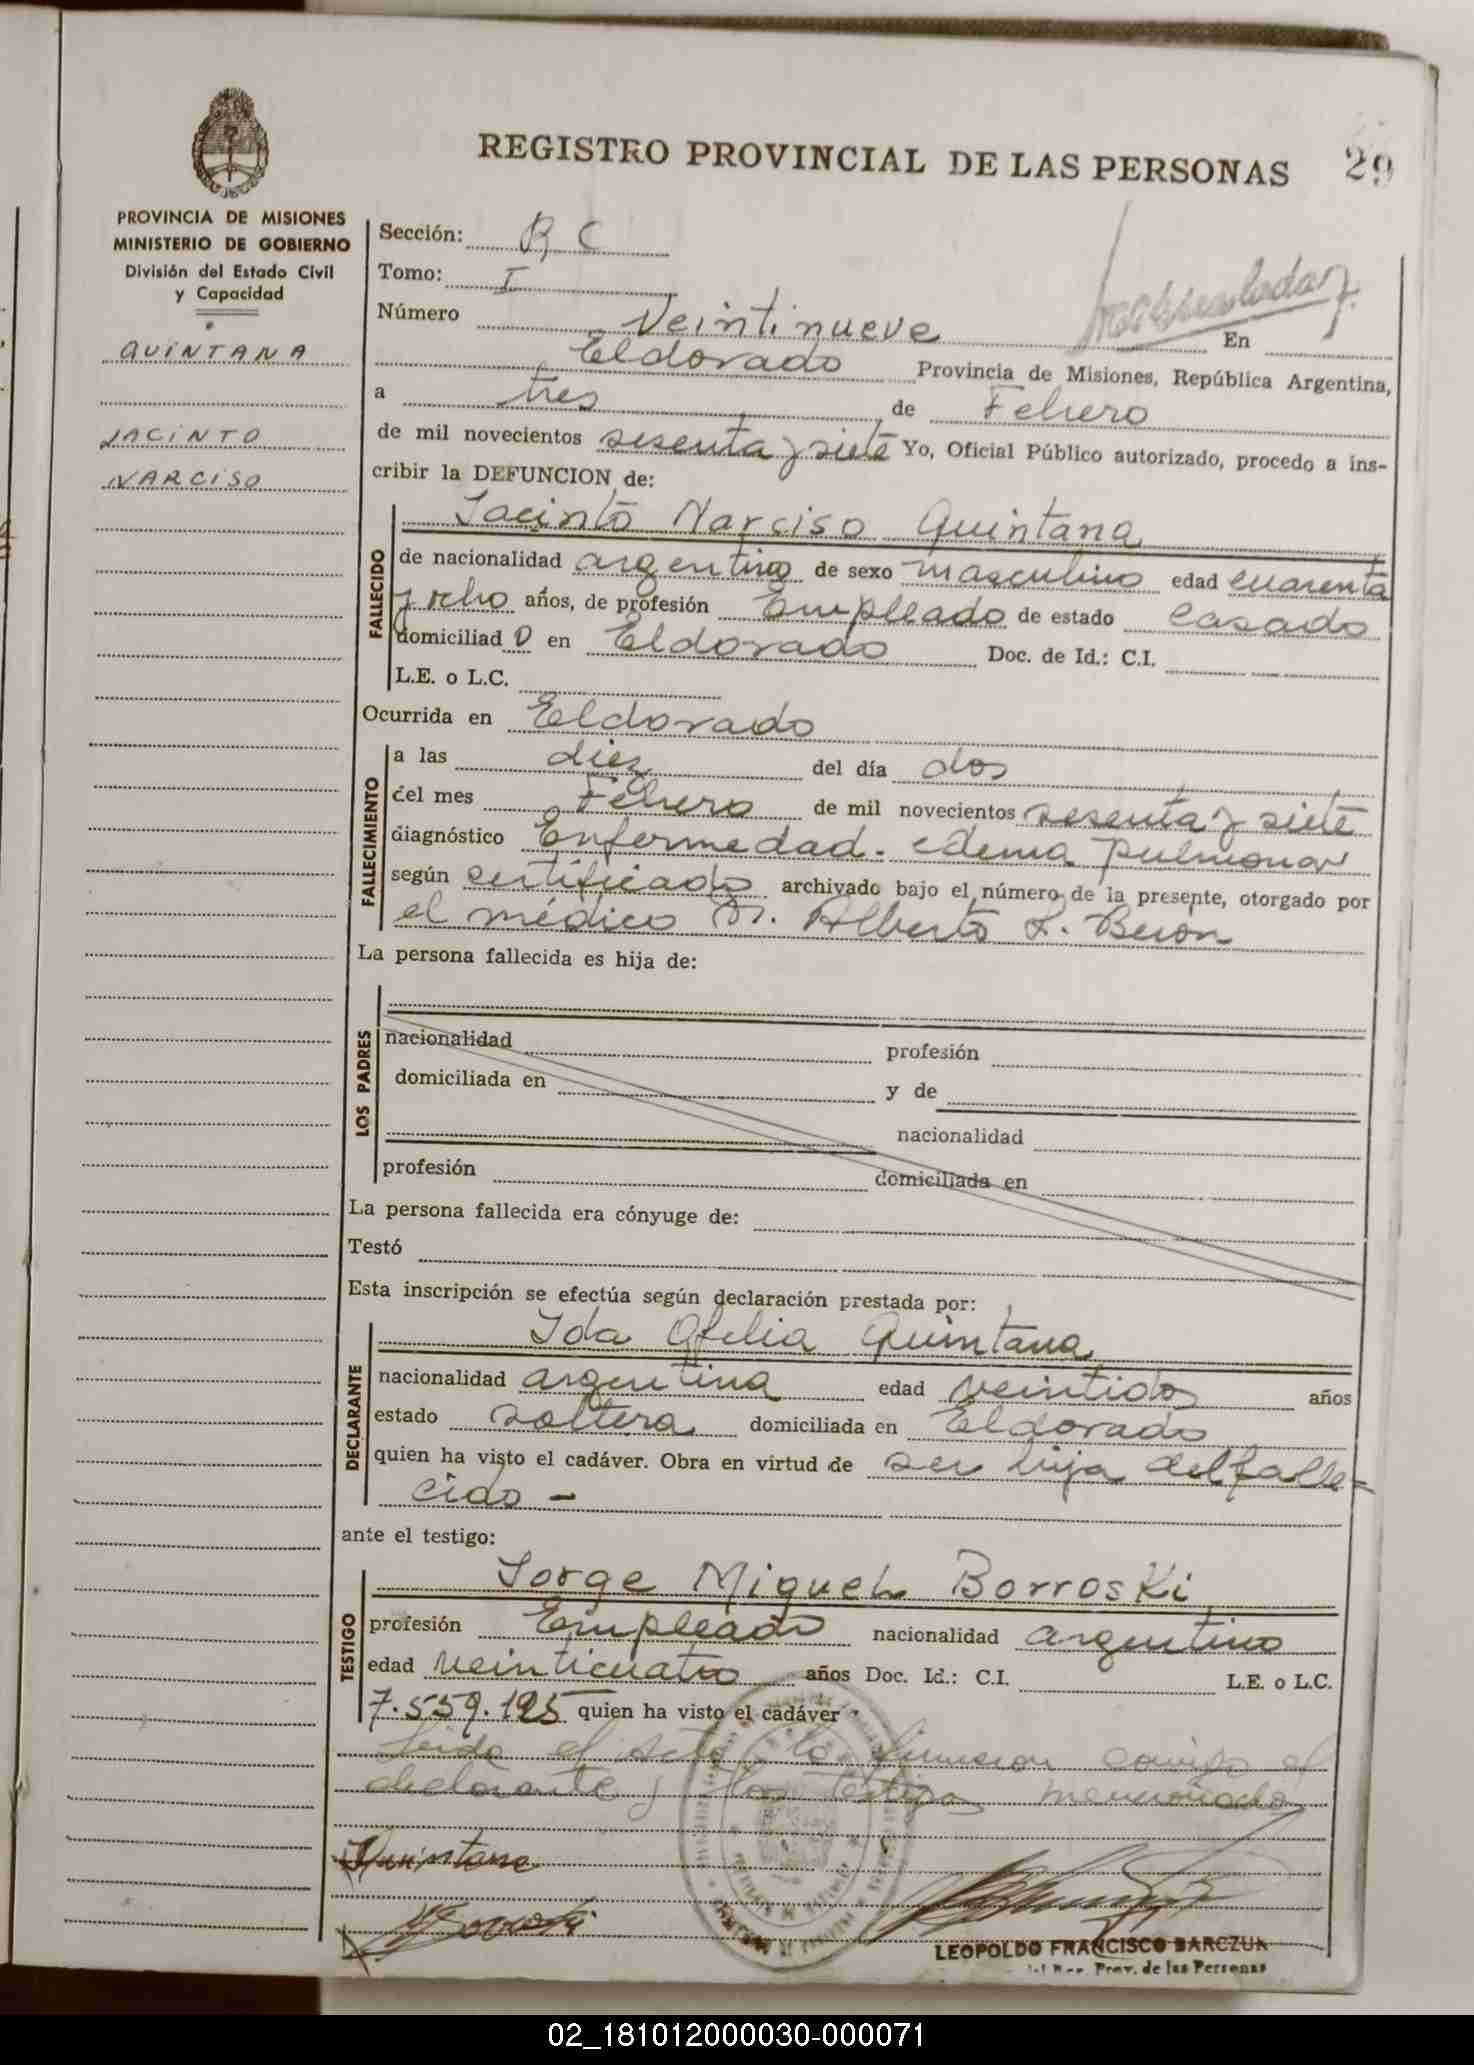 REGISTRO PROVINCIAL DE LAS PERSONAS 29
PROVINCIA DE MISIONES
MINISTERIO DE GOBIERNO
División del Estado Civil
y Capacidad
QUINTANA
JACINTO
NARCISO
Sección: R C
Tomo: I
Número Veintinueve En
Eldorado Provincia de Misiones, República Argentina,
a tres de Febrero
de mil novecientos sesenta y siete Yo, Oficial Público autorizado, procedo a ins-
cribir la DEFUNCION de:
FALLECIDO
Jacinto Narciso Quintana
de nacionalidad argentino de sexo masculino edad cuarenta
y ocho años, de profesión Empleado de estado casado
domiciliad o en Eldorado Doc. de Id.: C.I.
L.E. o L.C.
Ocurrida en Eldorado
FALLECIMIENTO
a las diez del día dos
del mes Febrero de mil novecientos sesenta y siete
diagnóstico Enfermedad. edema pulmonar
según certificado archivado bajo el número de la presente, otorgado por
el médico Dr. Alberto L. Beron
La persona fallecida es hija de:
LOS PADRES
nacionalidad profesión
domiciliada en y de
nacionalidad
profesión domiciliada en
La persona fallecida era cónyuge de:
Testó
Esta inscripción se efectúa según declaración prestada por:
DECLARANTE
Ida Ofelia Quintana
nacionalidad argentina edad veintidos años
estado soltera domiciliada en Eldorado
quien ha visto el cadáver. Obra en virtud de ser hija del falle=
cido -
ante el testigo:
TESTIGO
Jorge Miguel Borroski
profesión Empleado nacionalidad argentino
edad veinticuatro años Doc. Id.: C.I. L.E. o L.C.
7.559.195 quien ha visto el cadáver
Leida el acta la firman conmigo el
declarante y los testigos mencionados
Quintana
LEOPOLDO FRANCISCO BARCZUK
del Reg. Prov. de las Personas
02_181012000030-000071